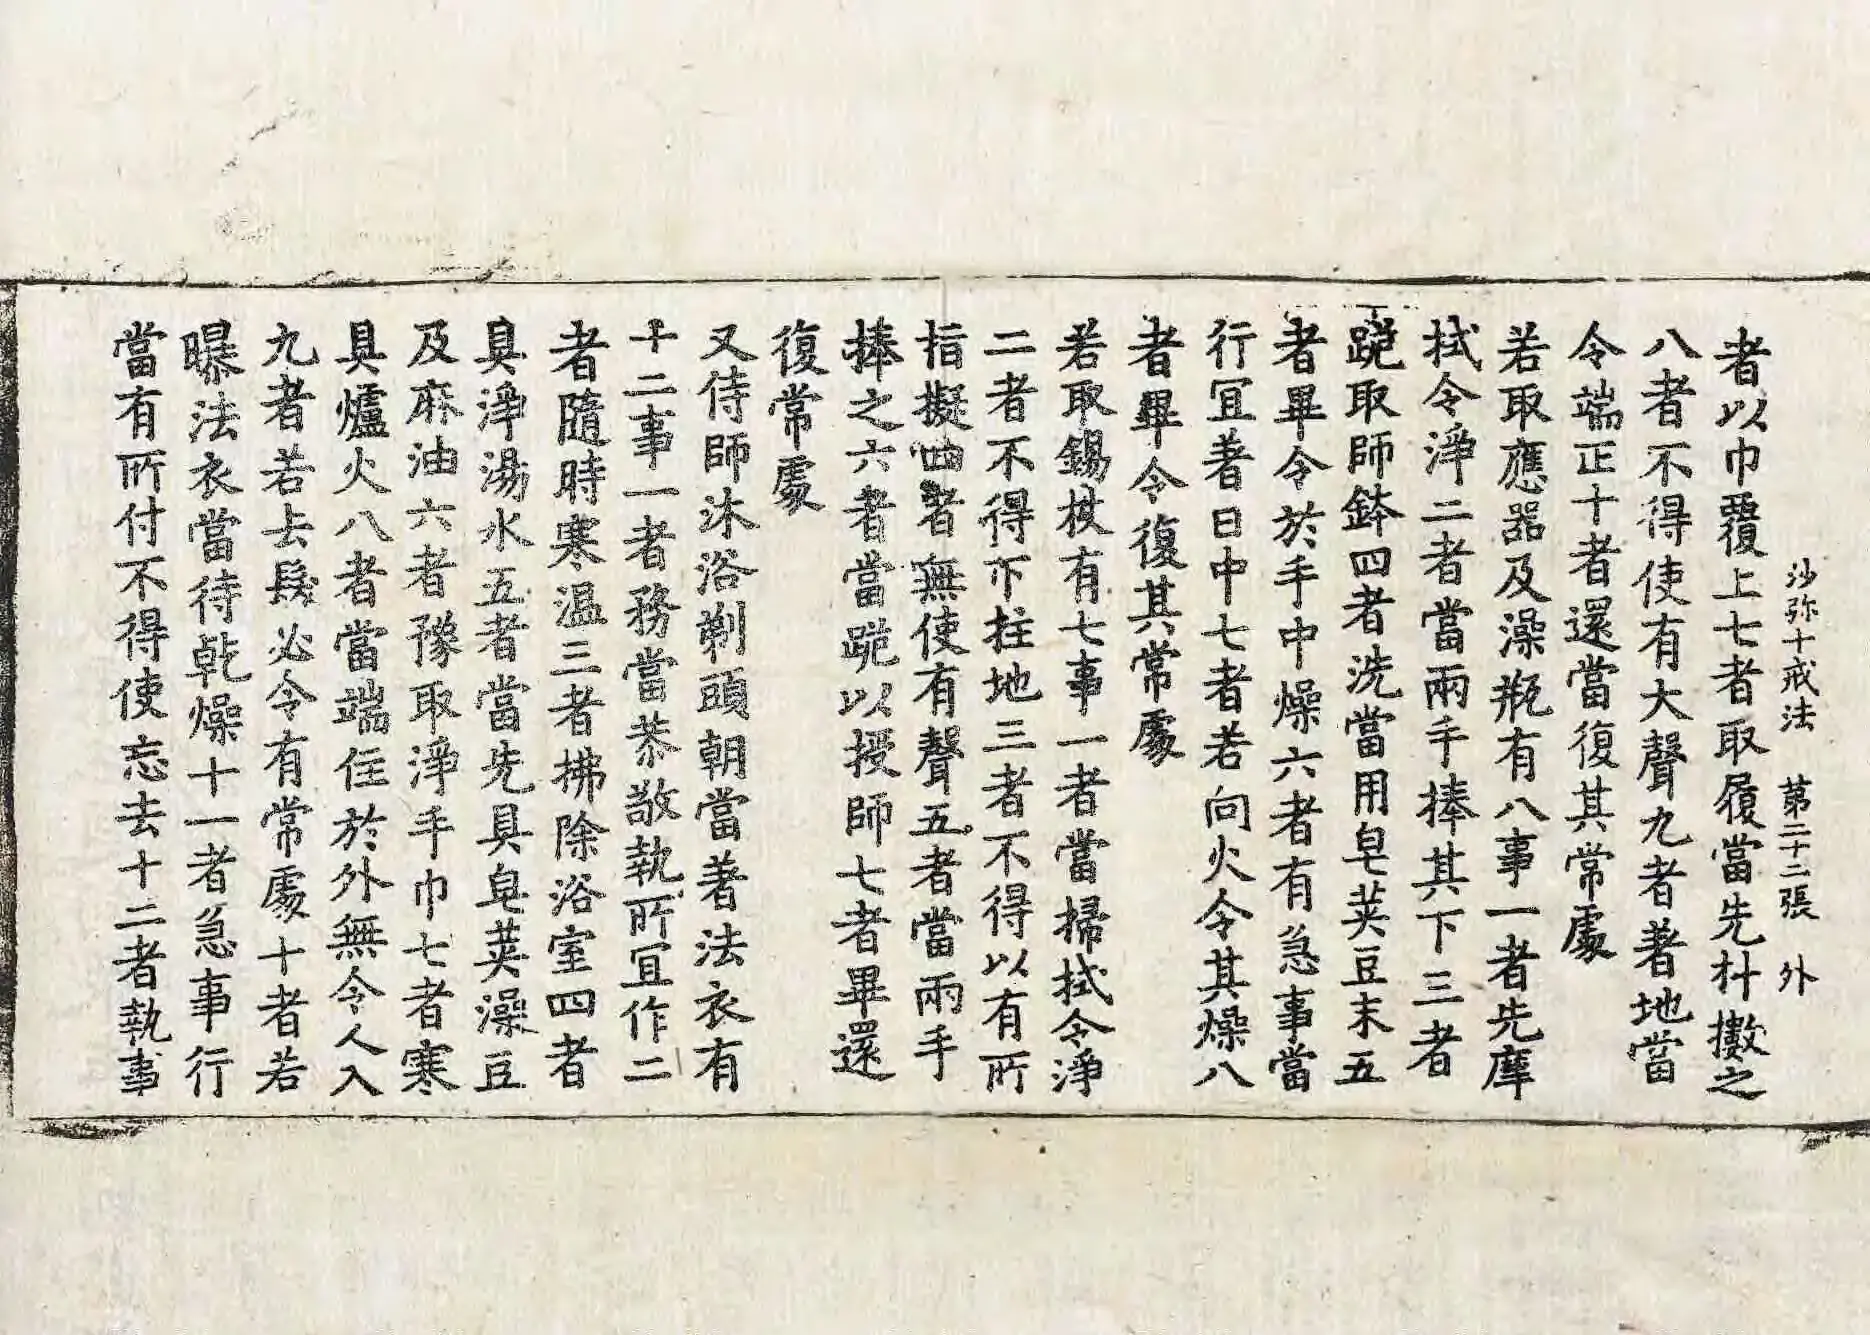 沙弥十戒法　第二十二張　外
者以巾覆上七者取履當先抖擻之
八者不得使有大聲九者著地當
令端正十者還當復其常處
若取應器及澡瓶有八事一者先摩
拭令淨二者當兩手捧其下三者
跪取師鉢四者洗當用皂莢豆末五
者畢令於手中燥六者有急事當
行宜著日中七者若向火令其燥八
者畢令復其常處
若取錫杖有七事一者當掃拭令淨
二者不得下拄地三者不得以有所
指擬四者無使有聲五者當兩手
捧之六者當跪以授師七者畢還
復常處
又侍師沐浴剃頭朝當著法衣有
十二事一者務當恭敬執所宜作二
者隨時寒温三者拂除浴室四者
具淨湯水五者當先具皂莢澡豆
及麻油六者豫取淨手巾七者寒
具爐火八者當端住於外無令人入
九者若去髮必令有常處十者若
曝法衣當待乾燥十一者急事行
當有所付不得使忘去十二者執事